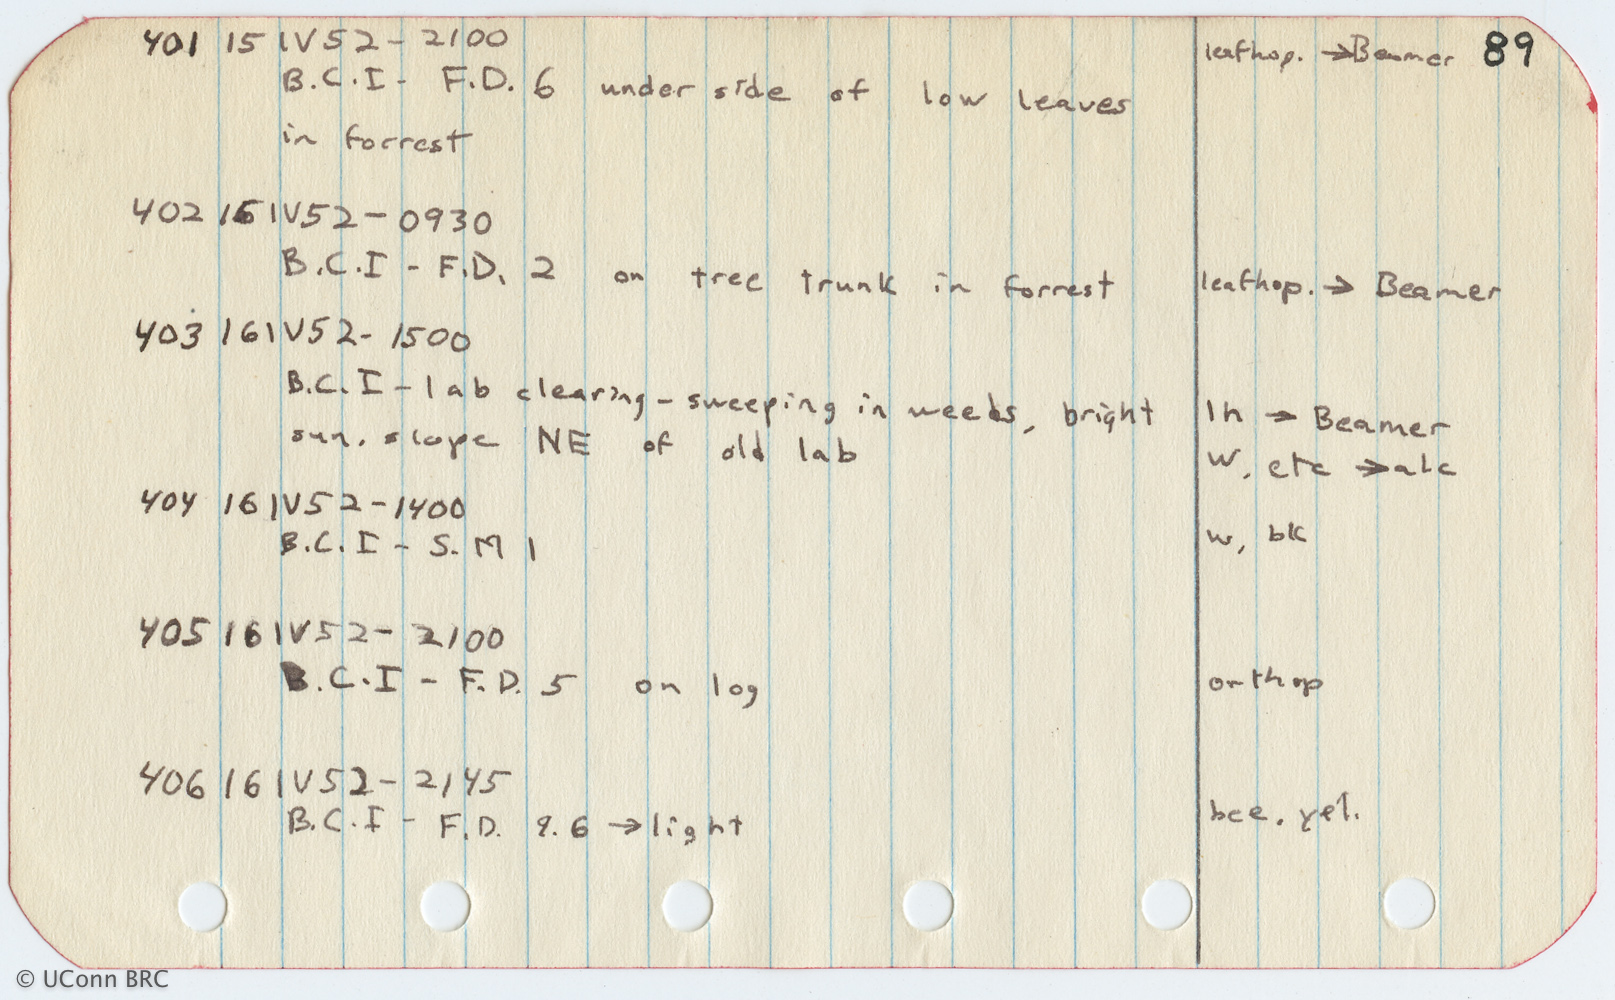 89
401 15 IV 52 - 2100 leafhop. → Beamer
B.C.I - F.D. 6 under side of low leaves
in forrest
402 16 IV 52 - 0930
B.C.I - F.D. 2 on tree trunk in forrest leafhop. → Beamer
403 16 IV 52 - 1500
B.C.I - lab clearing - sweeping in weeds, bright lh → Beamer
sun. slope NE of old lab w, etc → alc
404 16 IV 52 - 1400
B.C.I - S.M 1 w, bk
405 16 IV 52 - 2100
B.C.I - F.D. 5 on log orthop
406 16 IV 52 - 2145
B.C.I - F.D. 9.6 → light bee. yel.
© UConn BRC